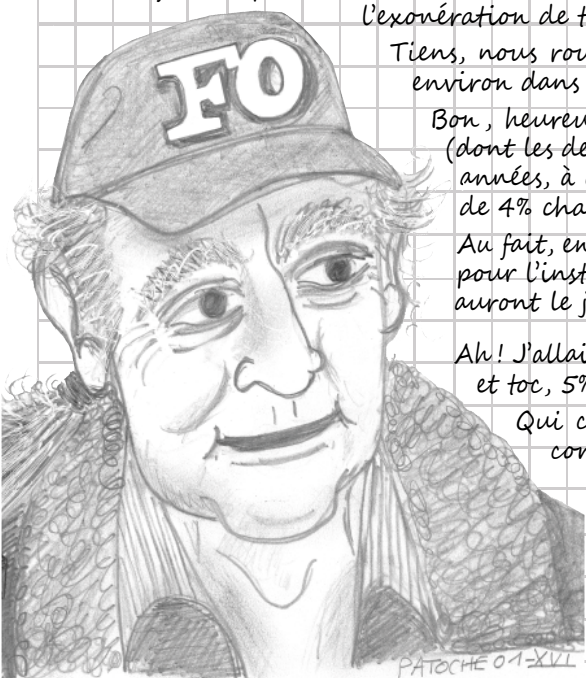 l'exonération de t
Tiens, nous rou
environ dans
Bon, heureu
(dont les de
années, à
de 4% cha
Au fait, en
pour l'inst
auront le j
Ah! J'allai
et toc, 5%
Qui c
con
FO
PATOCHE 01-XVI